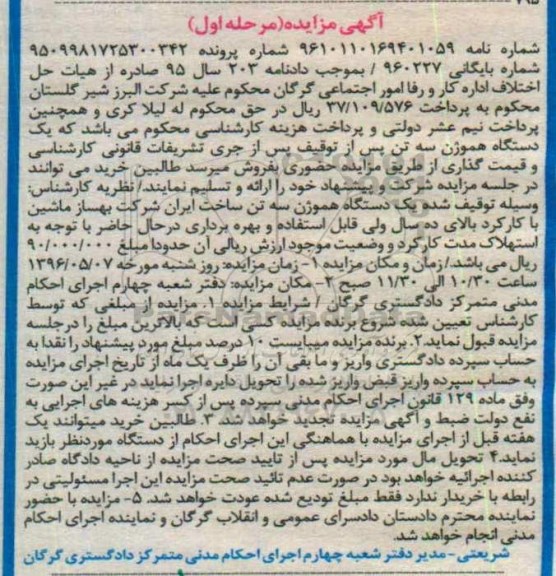 آگهی مزایده(مرحله اول)
شماره نامه ۹۶۱۰۱۱۰۱۶۹۴۰۱۰۵۹ شماره پرونده ۹۵۰۹۹۸۱۷۲۵۳۰۰۳۴۲
شماره بایگانی ۹۶۰۲۲۷ / بموجب دادنامه ۲۰۳ سال ۹۵ صادره از هیات حل
اختلاف اداره کار و رفا امور اجتماعی گرگان محکوم علیه شرکت البرز شیر گلستان
محکوم به پرداخت ۳۷/۱۰۹/۵۷۶ ریال در حق محکوم له لیلا کری و همچنین
پرداخت نیم عشر دولتی و پرداخت هزینه کارشناسی محکوم می باشد که یک
دستگاه هموژن سه تن پس از توقیف پس از جری تشریفات قانونی کارشناسی
و قیمت گذاری از طریق مزایده حضوری بفروش میرسد طالبین خرید می توانند
در جلسه مزایده شرکت و پیشنهاد خود را ارائه و تسلیم نمایند/ نظریه کارشناس:
وسیله توقیف شده یک دستگاه هموژن سه تن ساخت ایران شرکت بهساز ماشین
با کارکرد بالای ده سال ولی قابل استفاده و بهره برداری درحال حاضر با توجه به
استهلاک مدت کارکرد و وضعیت موجود ارزش ریالی آن حدودا مبلغ ۹۰/۰۰۰/۰۰۰
ریال می باشد./ زمان و مکان مزایده ۱- زمان مزایده: روز شنبه مورخه ۱۳۹۶/۰۵/۰۷
ساعت ۱۰/۳۰ الی ۱۱/۳۰ صبح ۲- مکان مزایده: دفتر شعبه چهارم اجرای احکام
مدنی متمرکز دادگستری گرگان / شرایط مزایده ۱. مزایده از مبلغی که توسط
کارشناس تعیین شده شروع برنده مزایده کسی است که بالاترین مبلغ را درجلسه
مزایده قبول نماید.۲. برنده مزایده میبایست ۱۰ درصد مبلغ مورد پیشنهاد را نقدا به
حساب سپرده دادگستری واریز و ما بقی آن را ظرف یک ماه از تاریخ اجرای مزایده
به حساب سپرده واریز قبض واریز شده را تحویل دایره اجرا نماید در غیر این صورت
وفق ماده ۱۲۹ قانون اجرای احکام مدنی سپرده پس از کسر هزینه های اجرایی به
نفع دولت ضبط و آگهی مزایده تجدید خواهد شد. ۳. طالبین خرید میتوانند یک
هفته قبل از اجرای مزایده با هماهنگی این اجرای احکام از دستگاه موردنظر بازید
نماید.۴ تحویل مال مورد مزایده پس از تایید صحت مزایده از ناحیه دادگاه صادر
کننده اجرائیه خواهد بود در صورت عدم تائید صحت مزایده این اجرا مسئولیتی در
رابطه با خریدار ندارد فقط مبلغ تودیع شده عودت خواهد شد. ۵- مزایده با حضور
نماینده محترم دادستان دادسرای عمومی و انقلاب گرگان و نماینده اجرای احکام
مدنی انجام خواهد شد.
شریعتی-مدیر دفتر شعبه چهارم اجرای احکام مدنی متمرکز دادگستری گرگان